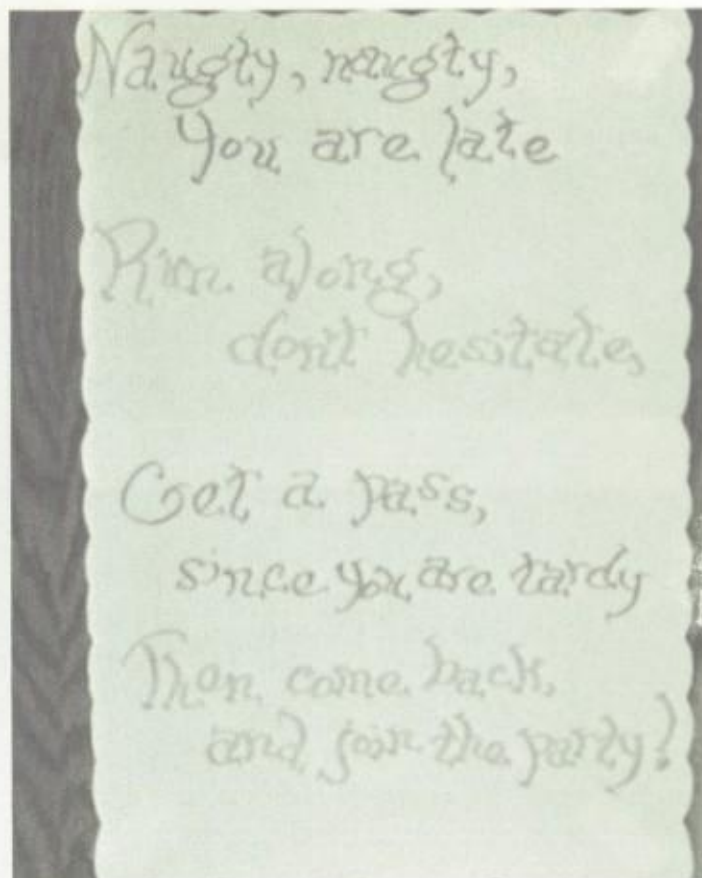 Naugty, naugty,
You are late
Run along,
don't hesitate,
Get a pass,
since you are tardy
Then come back,
and join the party!